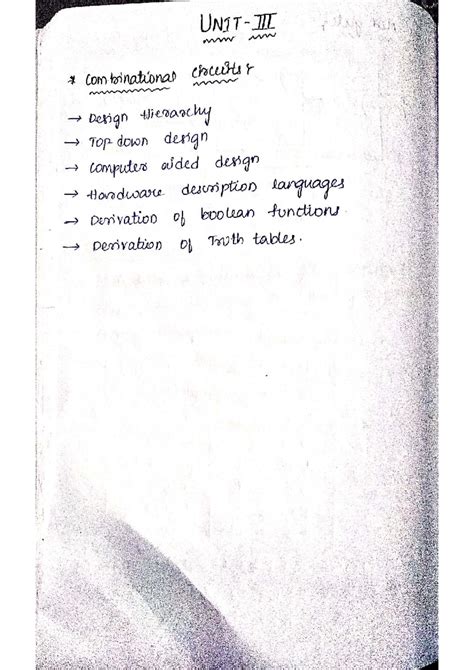 UNIT-III
* Combinational circuits :
→ Design Hierarchy
→ Top down design
→ Computer aided design
→ Hardware description languages
→ Derivation of boolean functions.
→ Derivation of Truth tables.